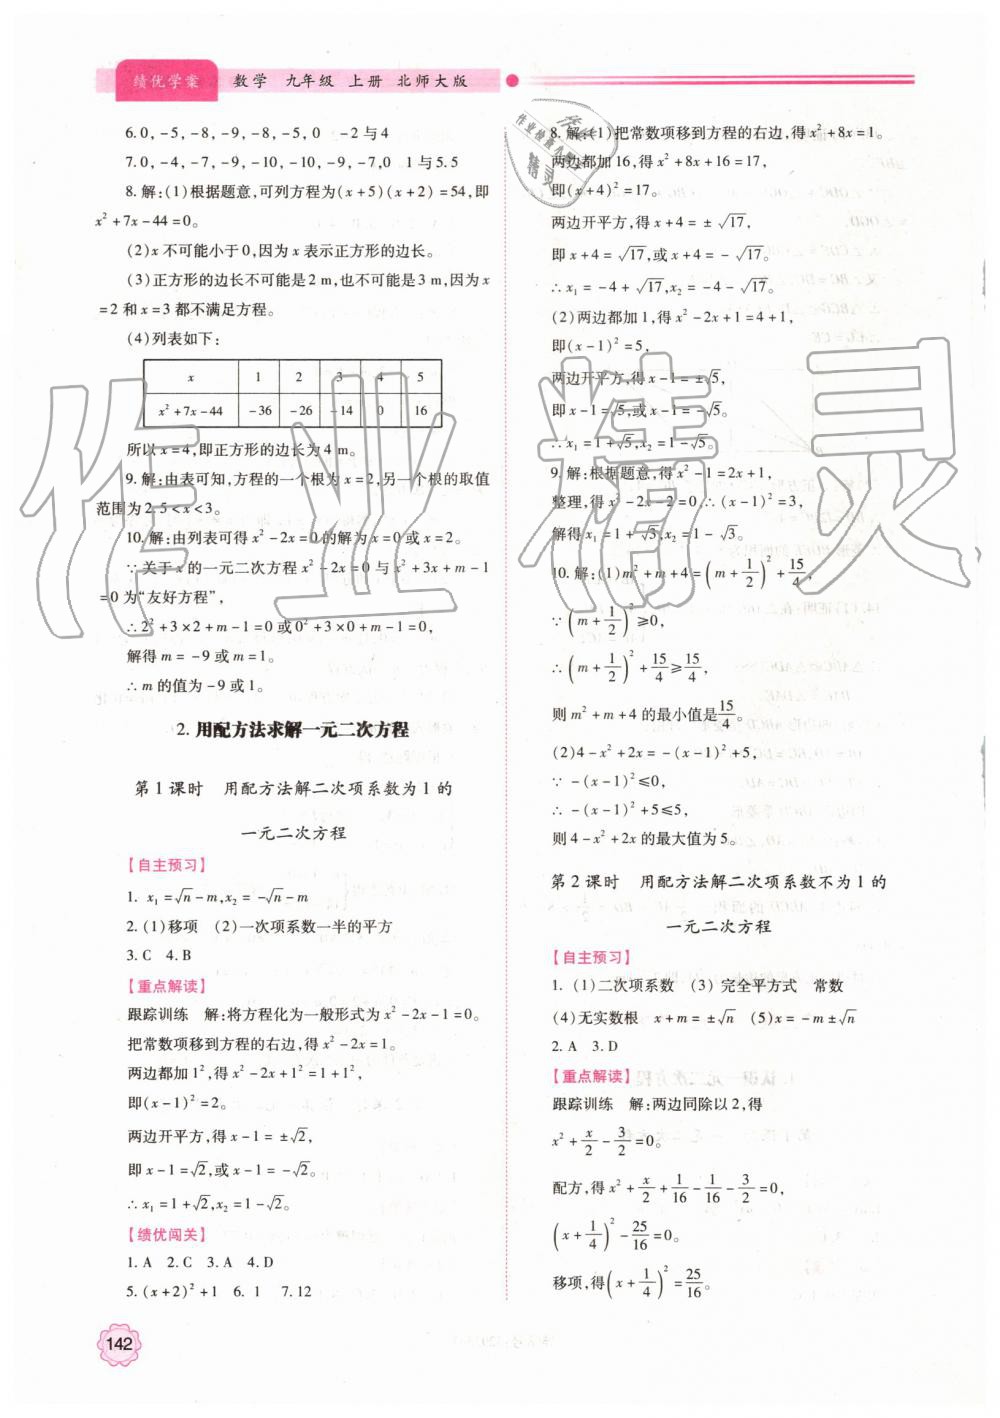 绩优学案 数学 九年级 上册 北师大版
6.0, -5, -8, -9, -8, -5, 0 -2与4
7.0, -4, -7, -9, -10, -10, -9, -7,0 1与5.5
8. 解:(1)根据题意,可列方程为(x+5)(x+2)=54,即
x²+7x-44=0。
(2)x不可能小于0,因为x表示正方形的边长。
(3)正方形的边长不可能是2 m,也不可能是3 m,因为x
=2和x=3都不满足方程。
(4)列表如下:
x 1 2 3 4 5
x²+7x-44 -36 -26 -14 0 16
所以x=4,即正方形的边长为4 m。
9. 解:由表可知,方程的一个根为x=2,另一个根的取值
范围为2.5<x<3。
10. 解:由列表可得x²-2x=0的解为x=0或x=2。
∵关于x的一元二次方程x²-2x=0与x²+3x+m-1
=0为“友好方程”,
∴2²+3×2+m-1=0或0²+3×0+m-1=0,
解得m=-9或m=1。
∴m的值为-9或1。
2. 用配方法求解一元二次方程
第1课时 用配方法解二次项系数为1的
一元二次方程
【自主预习】
1. x₁=√n-m,x₂=-√n-m
2. (1)移项 (2)一次项系数一半的平方
3. C 4. B
【重点解读】
跟踪训练 解:将方程化为一般形式为x²-2x-1=0。
把常数项移到方程的右边,得x²-2x=1。
两边都加1²,得x²-2x+1²=1+1²,
即(x-1)²=2。
两边开平方,得x-1=±√2,
即x-1=√2,或x-1=-√2。
∴x₁=1+√2,x₂=1-√2。
【绩优闯关】
1. A 2. C 3. A 4. D
5. (x+2)²+1 6. 1 7. 12
142
8. 解:(1)把常数项移到方程的右边,得x²+8x=1。
两边都加16,得x²+8x+16=17,
即(x+4)²=17。
两边开平方,得x+4=±√17,
即x+4=√17,或x+4=-√17。
∴x₁=-4+√17,x₂=-4-√17。
(2)两边都加1,得x²-2x+1=4+1,
即(x-1)²=5,
两边开平方,得x-1=±√5,
即x-1=√5,或x-1=-√5。
∴x₁=1+√5,x₂=1-√5。
9. 解:根据题意,得x²-1=2x+1,
整理,得x²-2x-2=0,∴(x-1)²=3,
解得x₁=1+√3,x₂=1-√3。
10. 解:(1)m²+m+4=(m+1/2)²+15/4,
∵(m+1/2)²≥0,
∴(m+1/2)²+15/4≥15/4,
则m²+m+4的最小值是15/4。
(2)4-x²+2x=-(x-1)²+5,
∵-(x-1)²≤0,
∴-(x-1)²+5≤5,
则4-x²+2x的最大值为5。
第2课时 用配方法解二次项系数不为1的
一元二次方程
【自主预习】
1. (1)二次项系数 (3)完全平方式 常数
(4)无实数根 x+m=±√n (5)x=-m±√n
2. A 3. D
【重点解读】
跟踪训练 解:两边同除以2,得
x²+x/2-3/2=0。
配方,得x²+x/2+1/16-1/16-3/2=0,
(x+1/4)²-25/16=0。
移项,得(x+1/4)²=25/16。
作业精灵